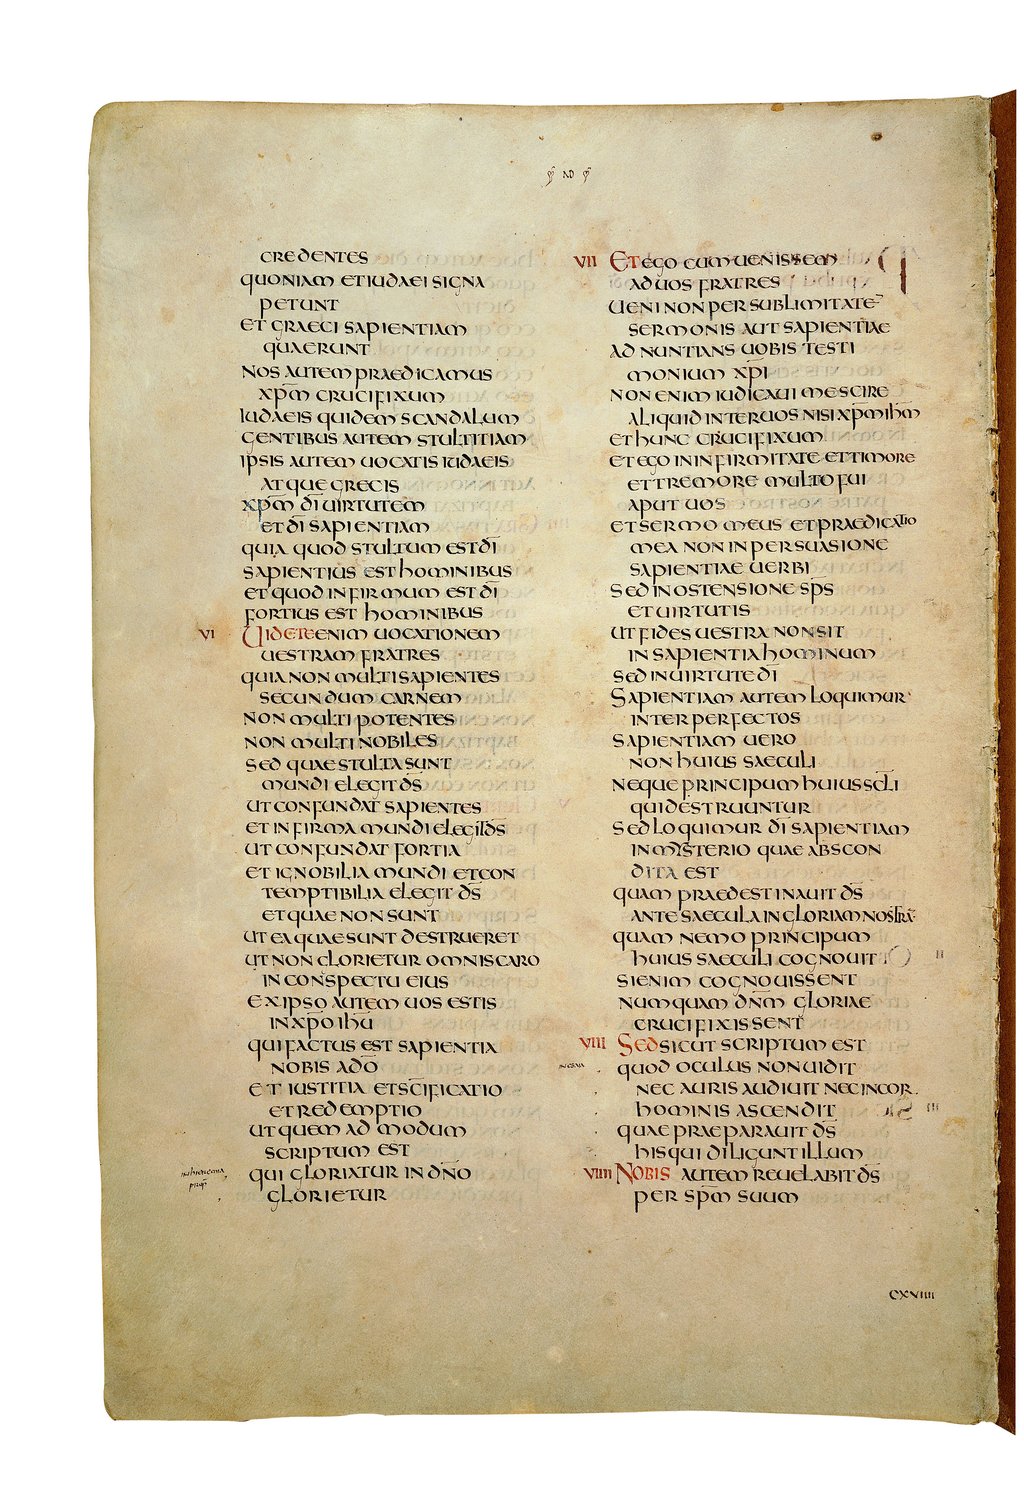 AD
CREDENTES
QUONIAM ETIUDAEI SIGNA
PETUNT
ET GRAECI SAPIENTIAM
QUAERUNT
NOS AUTEM PRAEDICAMUS
XP̄M CRUCIFIXUM
IUDAEIS QUIDEM SCANDALUM
GENTIBUS AUTEM STULTITIAM
IPSIS AUTEM UOCATIS IUDAEIS
ATQUE GRECIS
XP̄M D̄I UIRTUTEM
ET D̄I SAPIENTIAM
QUIA QUOD STULTUM EST D̄I
SAPIENTIUS EST HOMINIBUS
ET QUOD INFIRMUM EST D̄I
FORTIUS EST HOMINIBUS
VI UIDETE ENIM UOCATIONEM
UESTRAM FRATRES
QUIA NON MULTI SAPIENTES
SECUNDUM CARNEM
NON MULTI POTENTES
NON MULTI NOBILES
SED QUAE STULTA SUNT
MUNDI ELEGIT D̄S
UT CONFUNDAT SAPIENTES
ET INFIRMA MUNDI ELEGIT D̄S
UT CONFUNDAT FORTIA
ET IGNOBILIA MUNDI ET CON
TEMPTIBILIA ELEGIT D̄S
ET QUAE NON SUNT
UT EA QUAE SUNT DESTRUERET
UT NON GLORIETUR OMNIS CARO
IN CONSPECTU EIUS
EX IPSO AUTEM UOS ESTIS
IN XP̄O IH̄U
QUI FACTUS EST SAPIENTIA
NOBIS A D̄O
ET IUSTITIA ET SC̄IFICATIO
ET REDEMPTIO
UT QUEM AD MODUM
SCRIPTUM EST
in hieremia prop̄
QUI GLORIATUR IN D̄NO
GLORIETUR
VII ET EGO CUM UENISSEM
AD UOS FRATRES
UENI NON PER SUBLIMITATĒ
SERMONIS AUT SAPIENTIAE
ADNUNTIANS UOBIS TESTI
MONIUM XP̄I
NON ENIM IUDICAUI ME SCIRE
ALIQUID INTER UOS NISI XP̄M IH̄M
ET HUNC CRUCIFIXUM
ET EGO IN INFIRMITATE ET TIMORE
ET TREMORE MULTO FUI
APUT UOS
ET SERMO MEUS ET PRAEDICATIO
MEA NON IN PERSUASIONE
SAPIENTIAE UERBI
SED IN OSTENSIONE SP̄S
ET UIRTUTIS
UT FIDES UESTRA NON SIT
IN SAPIENTIA HOMINUM
SED IN UIRTUTE D̄I
SAPIENTIAM AUTEM LOQUIMUR
INTER PERFECTOS
SAPIENTIAM UERO
NON HUIUS SAECULI
NEQUE PRINCIPUM HUIUS SCL̄I
QUI DESTRUUNTUR
SED LOQUIMUR D̄I SAPIENTIAM
IN MYSTERIO QUAE ABSCON
DITA EST
QUAM PRAEDESTINAUIT D̄S
ANTE SAECULA IN GLORIAM NOSTRĀ
QUAM NEMO PRINCIPUM
HUIUS SAECULI COGNOUIT
SI ENIM COGNOUISSENT
NUMQUAM D̄N̄M GLORIAE
CRUCIFIXISSENT
VIII SED SICUT SCRIPTUM EST
IN ESAIA
QUOD OCULUS NON UIDIT
NEC AURIS AUDIUIT NEC IN COR
HOMINIS ASCENDIT
QUAE PRAEPARAUIT D̄S
HIS QUI DILIGUNT ILLUM
VIIII NOBIS AUTEM REUELABIT D̄S
PER SP̄M SUUM
CXVIIII